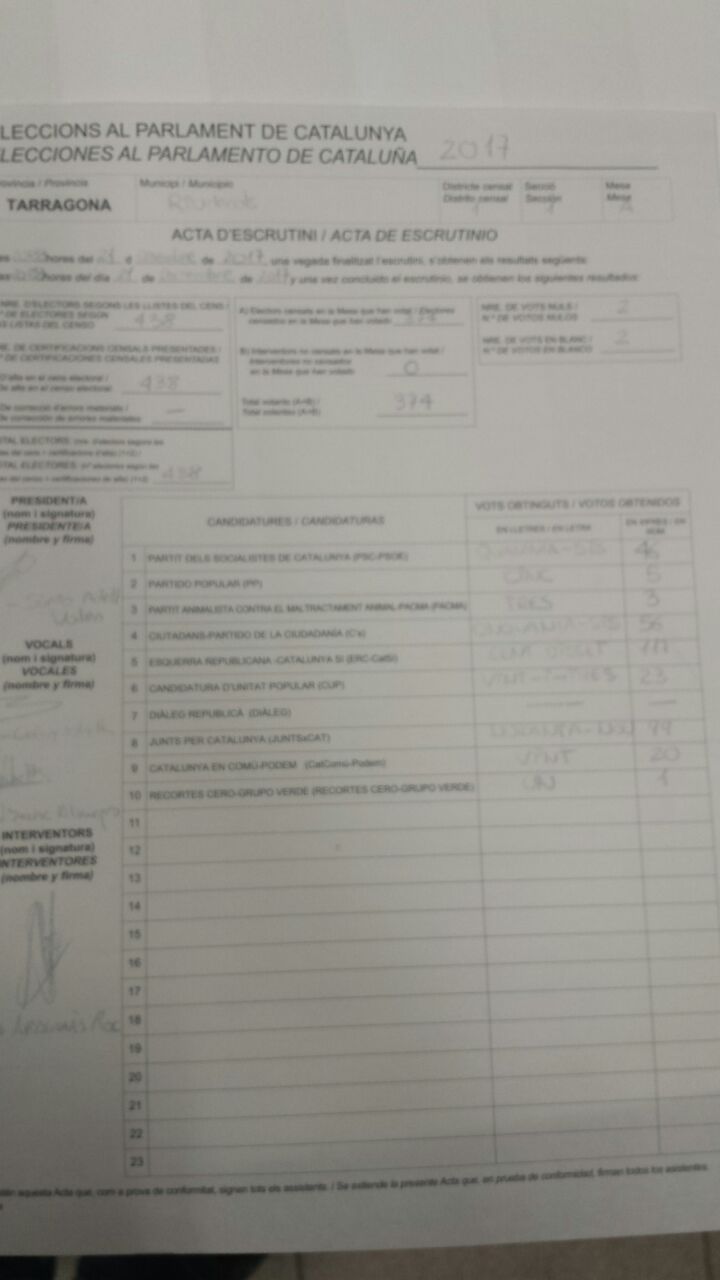 LECCIONS AL PARLAMENT DE CATALUNYA
LECCIONES AL PARLAMENTO DE CATALUÑA 2017
ovíncia / Provincia
TARRAGONA
Municipi / Municipio
Districte censal
Distrito censal
1
Secció
Sección
1
Mesa
Mesa
A
ACTA D'ESCRUTINI / ACTA DE ESCRUTINIO
hores del 21 d de 2017, una vegada finalitzat l'escrutini, s'obtenen els resultats següents:
horas del día 21 de de 2017 y una vez concluido el escrutinio, se obtienen los siguientes resultados:
NRE. D'ELECTORS SEGONS LES LLISTES DEL CENS /
º DE ELECTORES SEGÚN
S LISTAS DEL CENSO 438
E. DE CERTIFICACIONS CENSALS PRESENTADES /
º DE CERTIFICACIONES CENSALES PRESENTADAS
D'alta en el cens electoral /
De alta en el censo electoral 438
De correcció d'errors materials /
De corrección de errores materiales —
TAL ELECTORS:
TAL ELECTORES: 438
A) Electors censats en la Mesa que han votat / Electores
censados en la Mesa que han votado 374
B) Interventors no censats en la Mesa que han votat /
Interventores no censados
en la Mesa que han votado 0
Total votants (A+B) /
Total votantes (A+B) 374
NRE. DE VOTS NULS /
N.º DE VOTOS NULOS 2
NRE. DE VOTS EN BLANC /
N.º DE VOTOS EN BLANCO 2
PRESIDENT/A
(nom i signatura)
PRESIDENTE/A
(nombre y firma)
VOCALS
(nom i signatura)
VOCALES
(nombre y firma)
INTERVENTORS
(nom i signatura)
INTERVENTORES
(nombre y firma)
CANDIDATURES / CANDIDATURAS
VOTS OBTINGUTS / VOTOS OBTENIDOS
EN LLETRES / EN LETRA
EN XIFRES / EN NÚM.
1 PARTIT DELS SOCIALISTES DE CATALUNYA (PSC-PSOE) QUARANTA-SIS 46
2 PARTIDO POPULAR (PP) CINC 5
3 PARTIT ANIMALISTA CONTRA EL MALTRACTAMENT ANIMAL-PACMA (PACMA) TRES 3
4 CIUTADANS-PARTIDO DE LA CIUDADANÍA (C's) CINQUANTA-SIS 56
5 ESQUERRA REPUBLICANA -CATALUNYA SÍ (ERC-CatSí) CENT
6 CANDIDATURA D'UNITAT POPULAR (CUP) VINT-I-TRES 23
7 DIÀLEG REPUBLICÀ (DIÀLEG) — —
8 JUNTS PER CATALUNYA (JUNTSxCAT)
9 CATALUNYA EN COMÚ-PODEM (CatComú-Podem) VINT 20
10 RECORTES CERO-GRUPO VERDE (RECORTES CERO-GRUPO VERDE) UN 1
11
12
13
14
15
16
17
18
19
20
21
22
23
aquesta Acta que, com a prova de conformitat, signen tots els assistents. / Se extiende la presente Acta que, en prueba de conformidad, firman todos los asistentes.